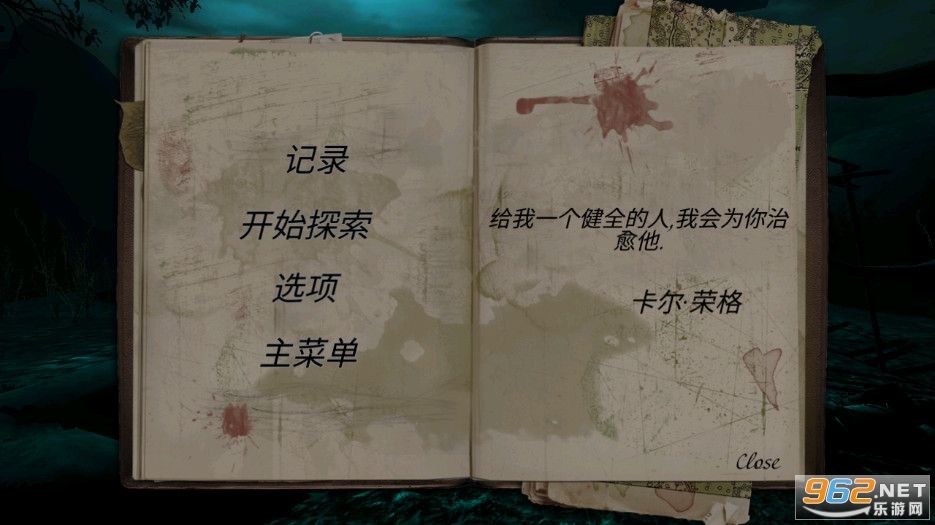 记录
开始探索
选项
主菜单
给我一个健全的人,我会为你治
愈他.
卡尔·荣格
Close
962.NET
乐游网